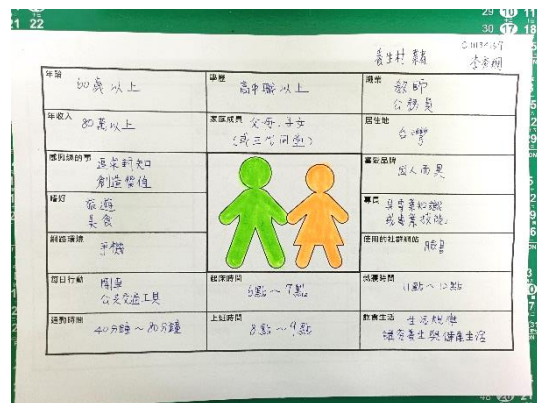 29 10 11
30 17 18
21 22
養生村 募森
年齡 50歲以上
學歷 高中職以上
職業 教師
公務員
年收入 80萬以上
家庭成員 父母、子女
(或三代同堂)
居住地 台灣
感興趣的事 追求新知
創造價值
喜歡品牌 因人而異
嗜好 旅遊
美食
專長 具專業知識
或專業技能
網路環境 手機
使用的社群網站 臉書
每日行動 開車
公共交通工具
起床時間 6點~7點
就寢時間 11點~12點
通勤時間 40分鐘~80分鐘
上班時間 8點~9點
飲食生活 生活規律
養生與健康生活